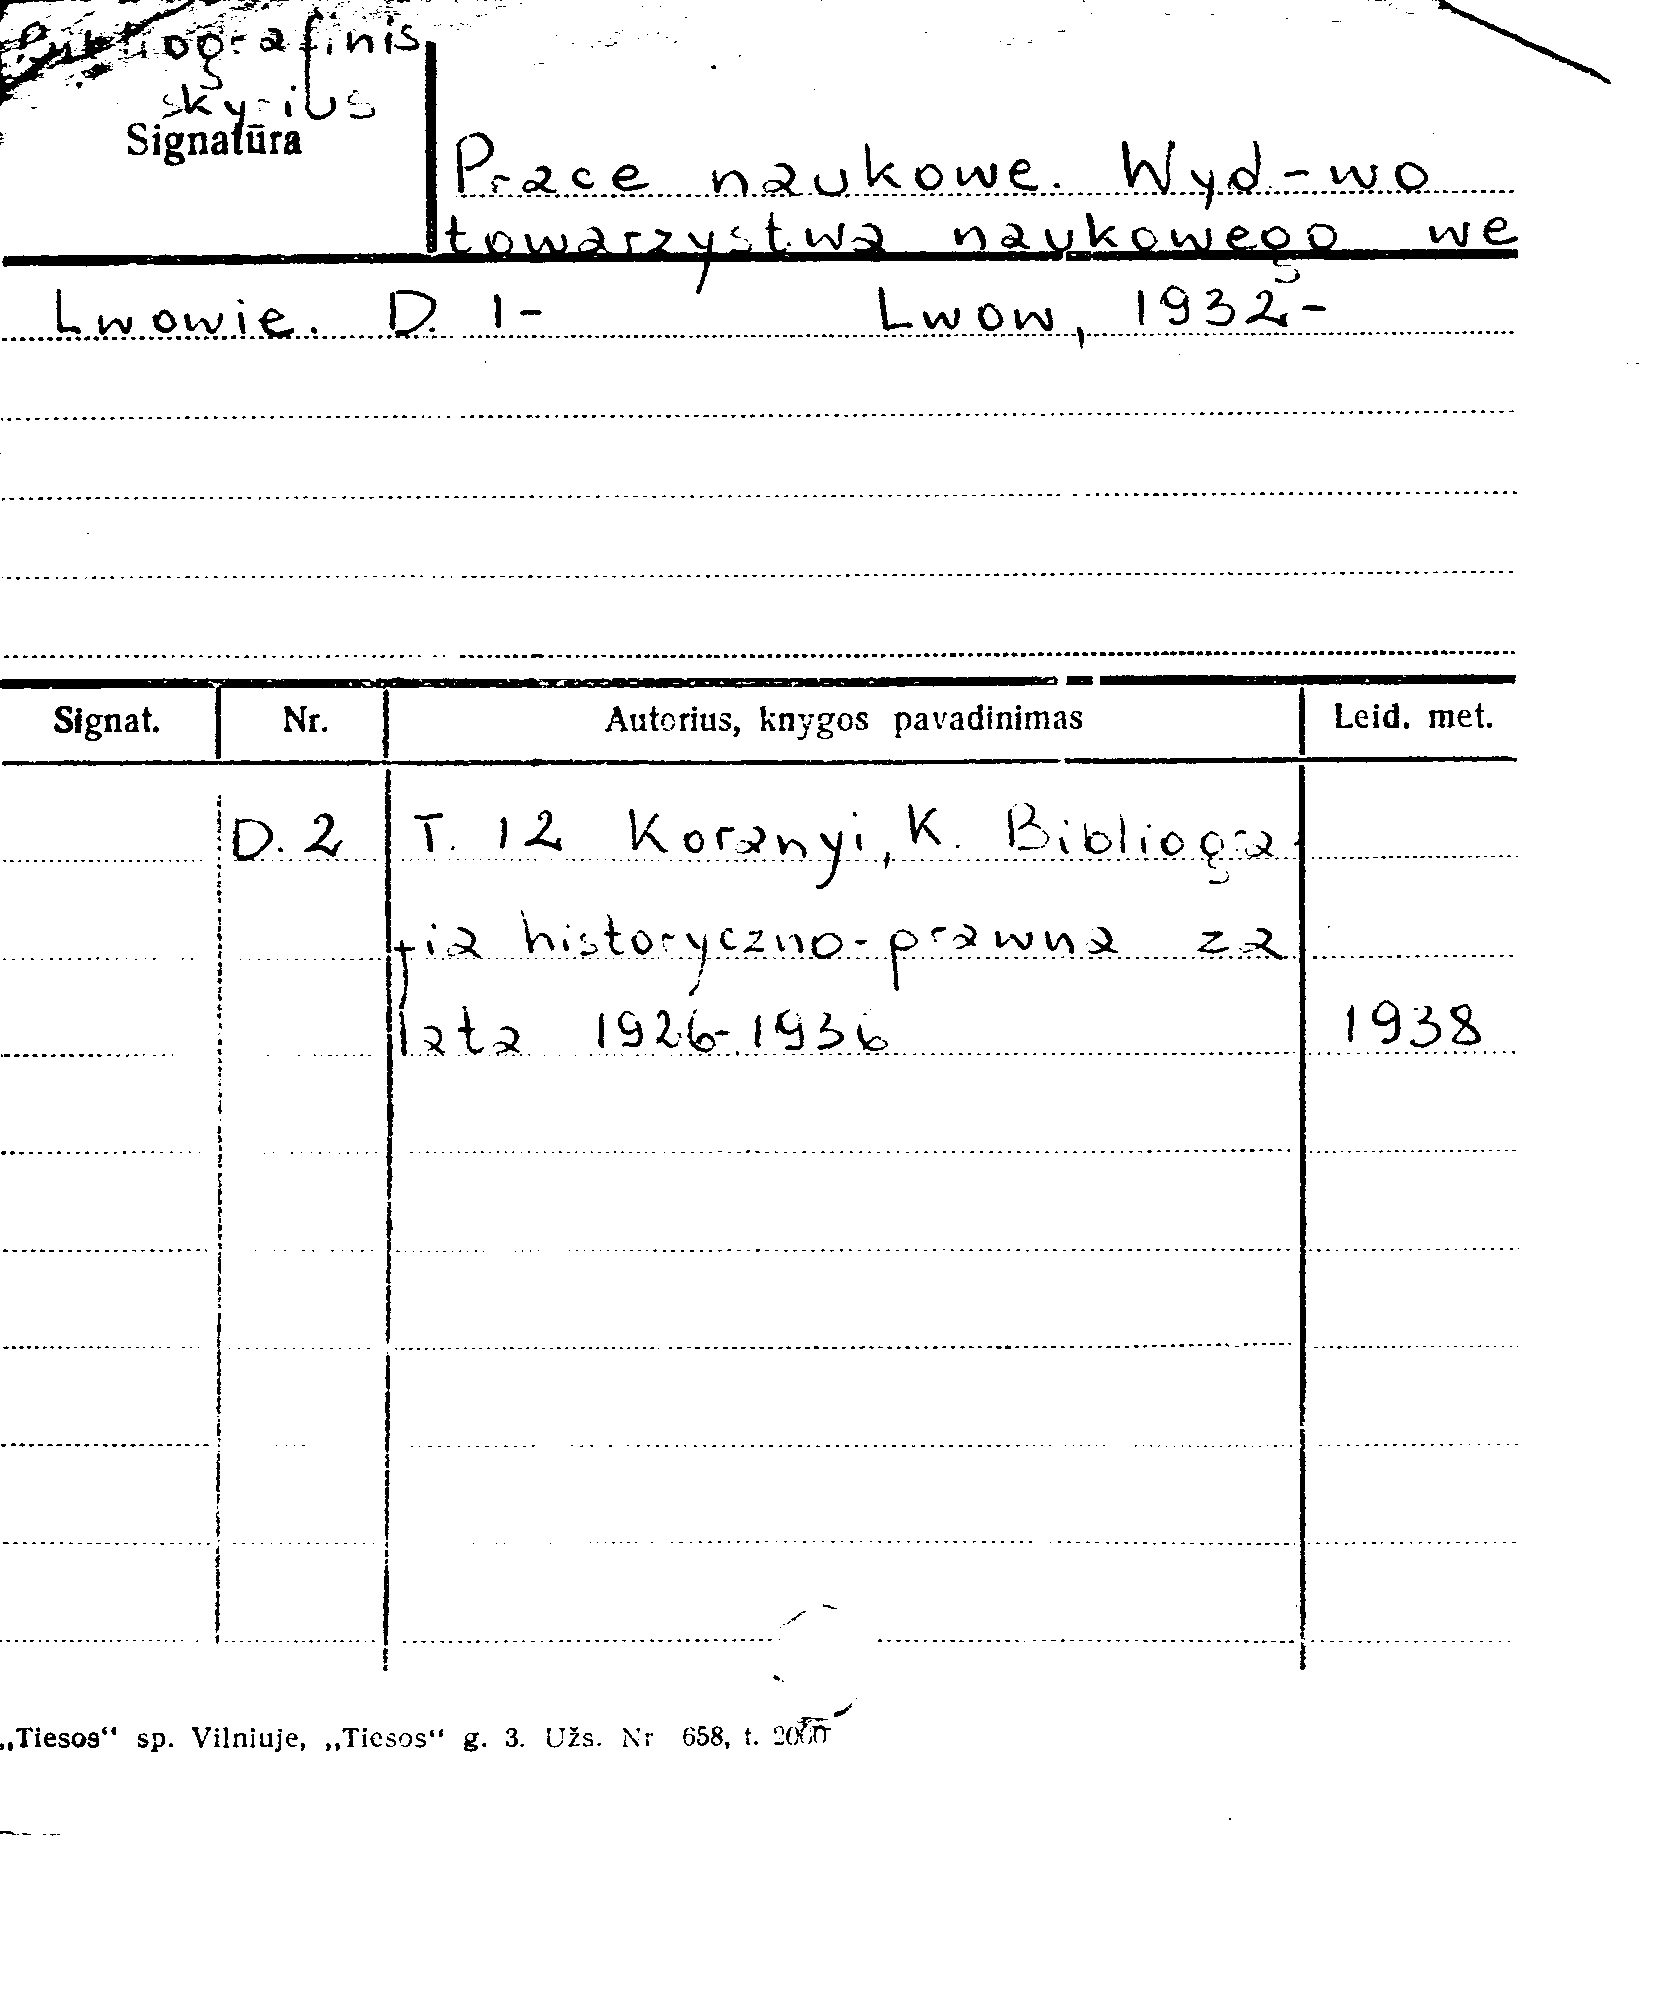 Bibliografinis
skyrius
Signatūra
Prace naukowe. Wyd-wo
towarzystwa naukowego we
Lwowie. D. 1- Lwow, 1932-
Signat. Nr. Autorius, knygos pavadinimas Leid. met.
D. 2 T. 12 Koranyi, K. Bibliogra-
fia historyczno-prawna za
lata 1926-1936 1938
„Tiesos“ sp. Vilniuje, „Tiesos“ g. 3. Užs. Nr 658, t. 2000